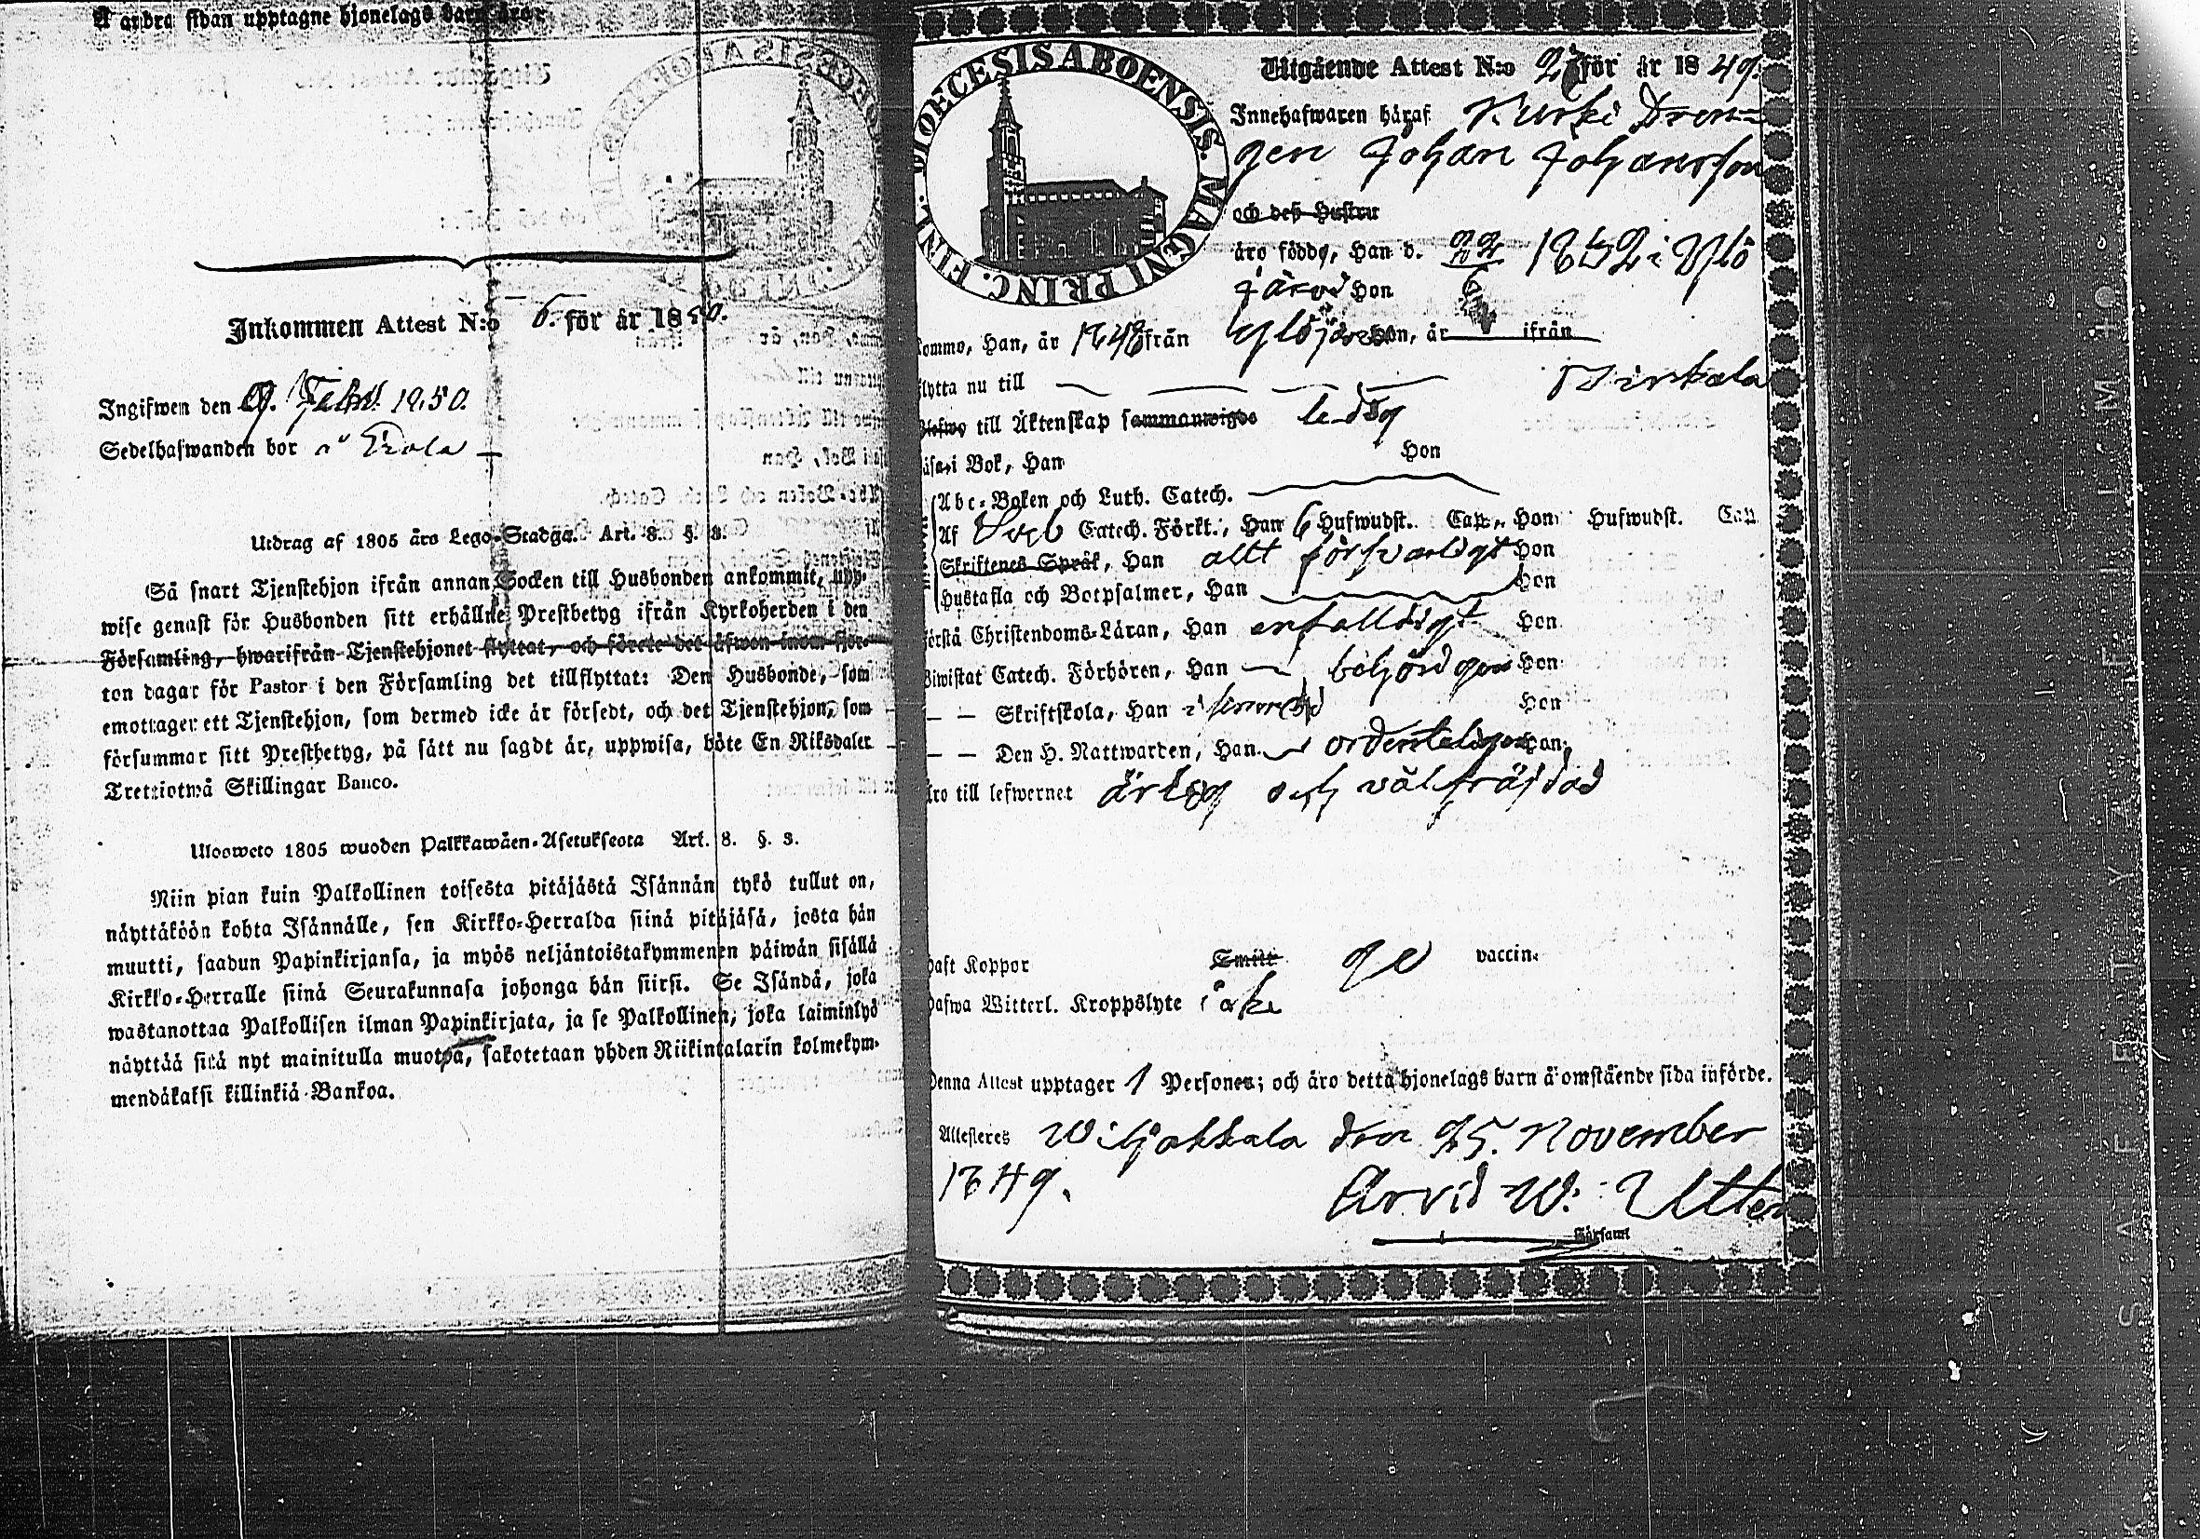 Å andra sidan upptagne hjonelags barn äro:
Inkommen Attest N:o 6. för år 1850.
Ingifwen den 9. Febr. 1850.
Sedelhafwanden bor i
Utdrag af 1805 års Lego-Stadga. Art. 8. §. 3.
Så snart Tjenstehjon ifrån annan Socken till Husbonden ankommit, upp-
wise genast för Husbonden sitt erhållne Prestbetyg ifrån Kyrkoherden i den
Församling, hwarifrån Tjenstehjonet flyttat, och förete det äfwen inom fjor-
ton dagar för Pastor i den Församling det tillflyttat: Den Husbonde, som
emottager ett Tjenstehjon, som dermed icke är försedt, och det Tjenstehjon, som
försummar sitt Prestbetyg, på sätt nu sagdt är, uppwisa, böte En Riksdaler
Trettiotwå Skillingar Banco.
Ulosweto 1805 wuoden Palkkawäen-Asetuksesta Art. 8. §. 3.
Niin pian kuin Palkollinen toisesta pitäjästä Isännän tykö tullut on,
näyttäköön kohta Isännälle, sen Kirkko-Herralda siinä pitäjäsä, josta hän
muutti, saadun Papinkirjansa, ja myös neljäntoistakymmenen päiwän sisällä
Kirkko-Herralle siinä Seurakunnasa johonga hän siirsi. Se Isändä, joka
wastanottaa Palkollisen ilman Papinkirjata, ja se Palkollinen, joka laiminlyö
näyttää sitä nyt mainitulla muotoa, sakotetaan yhden Riikintalarin kolmekym-
mendäkaksi killinkiä Bankoa.
DIOECESIS ABOENSIS. MAGNI PRINC. FINL.
Utgående Attest N:o 27 för år 1849.
Innehafwaren häraf Kurki Dren-
gen Johan Johansson
och deß Hustru
äro födde, Han d. 22/6 1832 i Ylö
järvi Hon
Kommo, Han, år 1848 från Ylöjärvi Hon, år ifrån
flytta nu till Birkala
Blefwo till Äktenskap sammanwigde ledig
Läsa i Bok, Han Hon
Abc-Boken och Luth. Catech.
Af Sveb Catech. Förkl., Han 6 Hufwudst. Cap., Hon Hufwudst. Cap
Skriftenes Språk, Han allt försvarligt Hon
Hustafla och Botpsalmer, Han Hon
förstå Christendoms-Läran, Han enfalldigt Hon
Biwistat Catech. Förhören, Han behörigen Hon
— — Skriftskola, Han Hon
— — Den H. Nattwarden, Han ordenteligen Hon
äro till lefwernet ärlig och välfräjdad
haft Koppor Smitt ge vaccin.
hafwa Witterl. Kroppslyte icke
Denna Attest upptager 1 Persones; och äro detta hjonelags barn å omstående sida införde.
Attesteres Wiljakkala den 25. November
1849.
Arvid W. Utter